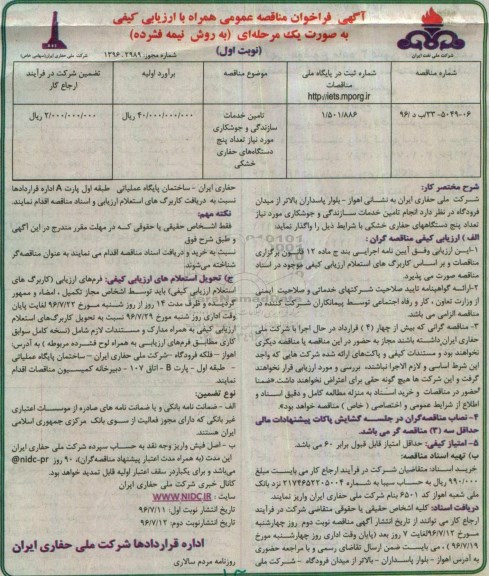 آگهی فراخوان مناقصه عمومی همراه با ارزیابی کیفی
به صورت یک مرحله‌ای (به روش نیمه فشرده)
(نوبت اول)
شماره مجوز: ۱۳۹۶.۲۹۸۹
شرکت ملی نفت ایران
شرکت ملی حفاری ایران (سهامی خاص)
شماره مناقصه
شماره ثبت در پایگاه ملی مناقصات
http://iets.mporg.ir
موضوع مناقصه
برآورد اولیه
تضمین شرکت در فرآیند ارجاع کار
۱/۵۰۱/۸۸۶
تامین خدمات سازندگی و جوشکاری مورد نیاز تعداد پنج دستگاه‌های حفاری خشکی
۴۰/۰۰۰/۰۰۰/۰۰۰ ریال
۲/۰۰۰/۰۰۰/۰۰۰ ریال
شرح مختصر کار:
شرکت ملی حفاری ایران به نشانی اهواز - بلوار پاسداران بالاتر از میدان
فرودگاه در نظر دارد انجام تامین خدمات سازندگی و جوشکاری مورد نیاز
تعداد پنج دستگاههای حفاری خشکی با شرایط ذیل را واگذار نماید:
الف) ارزیابی کیفی مناقصه گران:
۱-این ارزیابی وفق آیین نامه اجرایی بند ج ماده ۱۲ قانون برگزاری
مناقصات و بر اساس کاربرگ های استعلام ارزیابی کیفی موجود در اسناد
مناقصه صورت می پذیرد.
۲-ارائه گواهینامه تایید صلاحیت شرکتهای خدماتی و صلاحیت ایمنی
از وزارت تعاون، کار و رفاه اجتماعی توسط پیمانکاران شرکت کننده در
مناقصه الزامی می باشد.
۳- مناقصه گرانی که بیش از چهار (۴) قرارداد در حال اجرا با شرکت ملی
حفاری ایران داشته باشند مجاز به حضور در این مناقصه یا مناقصه دیگری
نخواهند بود و مستندات کیفی و پاکت‌های ارائه شده شرکت هایی که واجد
این شرط اساسی و لازم الاجرا نباشند، بررسی و مورد ارزیابی قرار نخواهند
گرفت و این شرکت ها هیچ گونه حقی برای اعتراض نخواهند داشت. «ضمنا
حضور در مناقصات و خرید اسناد به منزله مطالعه کامل و دقیق اسناد و
اطلاع از شرایط عمومی و اختصاصی (خاص) مناقصه خواهد بود».
۴- نصاب مناقصه‌گران در جلسه گشایش پاکات پیشنهادات مالی
حداقل سه (۳) مناقصه گر می باشد.
۵- امتیاز کیفی: حداقل امتیاز قابل قبول برابر ۶۰ می باشد.
ب) تهیه اسناد مناقصه:
خرید اسناد: متقاضیان شرکت در فرآیند ارجاع کار می بایست مبلغ
۹۹۰/۰۰۰ ریال به حساب سیبا به شماره ۲۱۷۴۶۵۲۲۰۵۰۰۴ نزد بانک
ملی شعبه اهواز کد ۶۵۰۱ بنام شرکت ملی حفاری ایران واریز نمایند.
دریافت اسناد: کلیه اشخاص حقیقی یا حقوقی متقاضی شرکت در فرآیند
ارجاع کار می توانند از تاریخ انتشار آگهی مناقصه نوبت دوم روز چهارشنبه
مورخ ۹۶/۷/۱۲ لغایت ۷ روز بعد (پایان وقت اداری روز چهارشنبه مورخ
۹۶/۷/۱۹)، می بایست ضمن ارسال تقاضای رسمی و با مراجعه حضوری
به آدرس اهواز - بلوار پاسداران - بالاتر از میدان فرودگاه - شرکت ملی
حفاری ایران - ساختمان پایگاه عملیاتی طبقه اول پارت A اداره قراردادها
نسبت به دریافت کاربرگ های استعلام ارزیابی و اسناد مناقصه اقدام نمایند.
نکته مهم:
فقط اشخاص حقیقی یا حقوقی که در مهلت مقرر مندرج در این آگهی
و طبق شرح فوق
نسبت به خرید و دریافت اسناد مناقصه اقدام می نمایند به عنوان مناقصه‌گر
شناخته می‌شوند.
ج) تحویل استعلام های ارزیابی کیفی: فرم‌های ارزیابی (کاربرگ های
استعلام ارزیابی کیفی) باید توسط اشخاص مجاز تکمیل، امضاء و ممهور
گردیده و ظرف مدت ۱۴ روز از روز شنبه مورخ ۹۶/۷/۲۲ لغایت پایان
وقت اداری روز شنبه مورخ ۹۶/۷/۲۹ نسبت به تحویل کاربرگ‌های استعلام
ارزیابی کیفی به همراه مدارک و مستندات لازم شامل (نسخه کامل سوابق
کاری مطابق فرم‌های ارزیابی به همراه لوح فشرده مربوطه) به آدرس:
اهواز - فلکه فرودگاه - شرکت ملی حفاری ایران - ساختمان پایگاه عملیاتی
- طبقه اول - پارت B - اتاق ۱۰۷ - دبیرخانه کمیسیون مناقصات اقدام
نمایند.
نوع تضمین:
الف - ضمانت نامه بانکی و یا ضمانت نامه های صادره از موسسات اعتباری
غیر بانکی که دارای مجوز فعالیت از سوی بانک مرکزی جمهوری اسلامی
ایران هستند.
ب - اصل فیش واریز وجه نقد به حساب سپرده شرکت ملی حفاری ایران
این مدت (به همراه مدت اعتبار پیشنهاد مناقصه‌گران)، ۹۰ روز @nidc-pr
می‌باشد و برای یکبار در سقف اعتبار اولیه قابل تمدید خواهد بود.
کانال خبری شرکت ملی حفاری ایران
سایت: WWW.NIDC.IR
تاریخ انتشار نوبت اول: ۹۶/۷/۱۱
تاریخ انتشار نوبت دوم: ۹۶/۷/۱۲
اداره قراردادها شرکت ملی حفاری ایران
روزنامه مردم سالاری